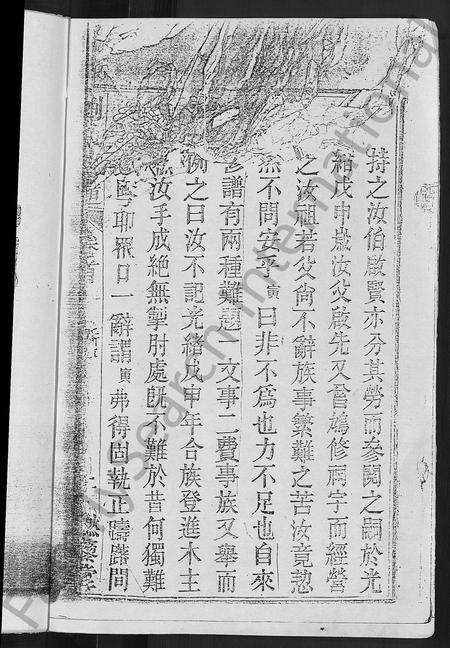 持之汝伯啟賢亦分其勞而參閱之嗣於光
緒戊申歲汝父啟先又晉鳩修祠宇而經營
之汝祖若父尚不辭族事繁難之苦汝竟恝
然不問安乎寅曰非不為也力不足也自來
修譜有兩種難題一文事二費事族又舉而
之曰汝不記光緒戊申年合族登進木主
汝手成絕無掣肘處既不難於昔何獨難
一辭謂寅弗得固執正躊躇間
卷首
Family Search International